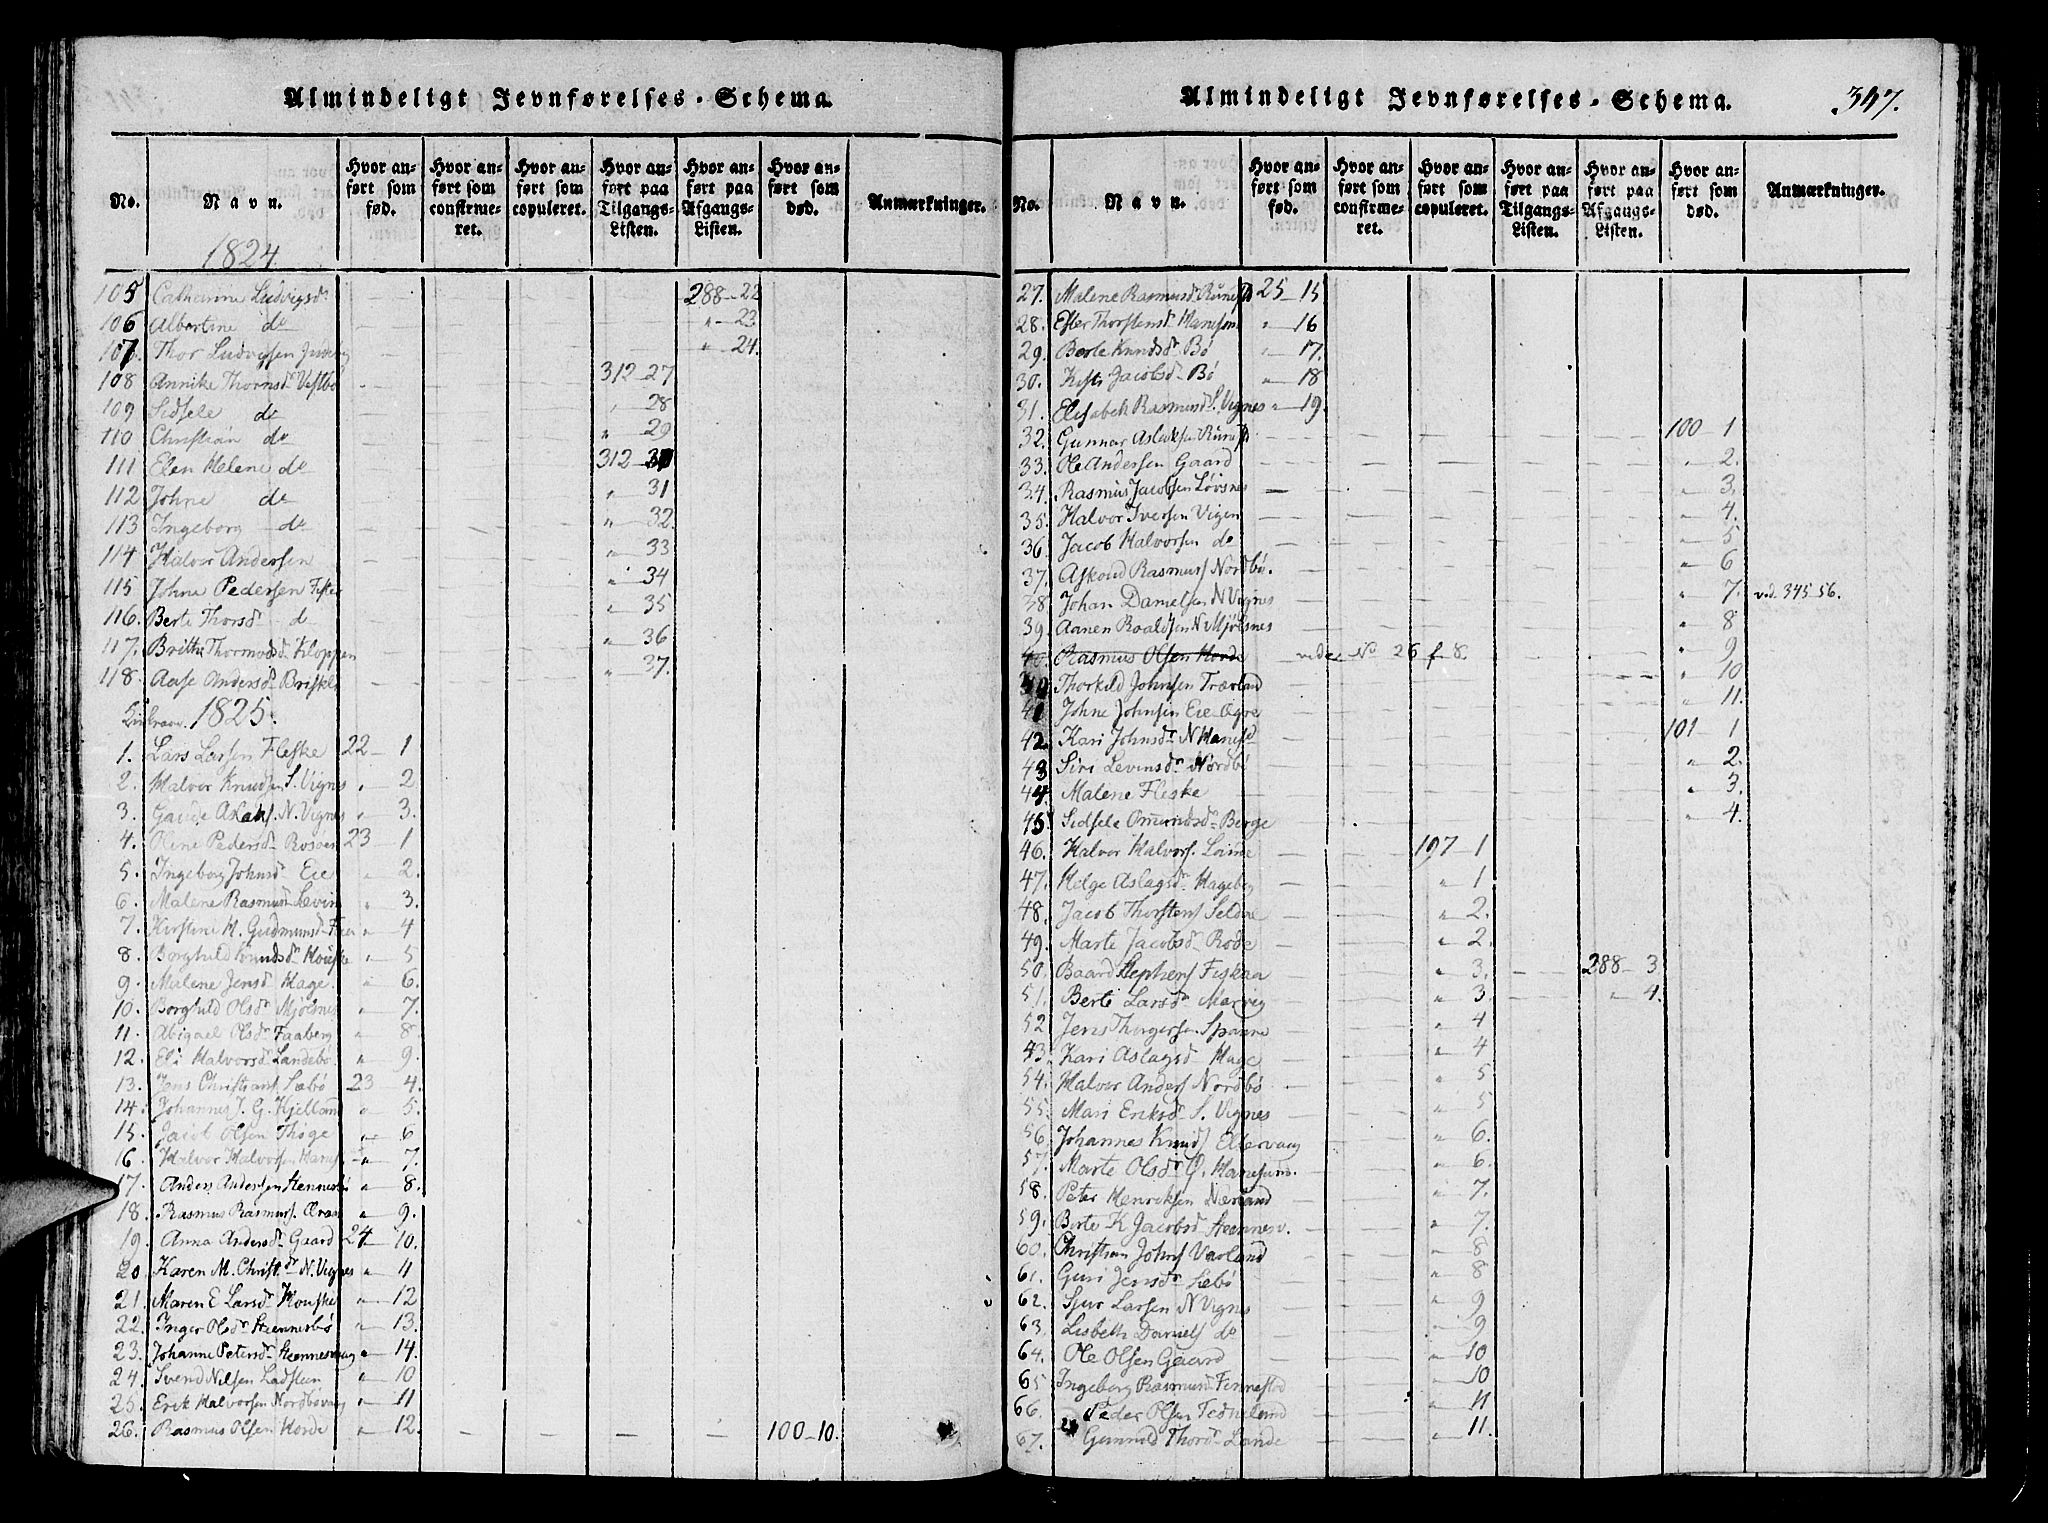 Almindeligt Jevnførelses-Schema.
No.
Navn.
Hvor anført som fød.
Hvor anført som confirmeret.
Hvor anført som copuleret.
Hvor anført paa Tilgangs-Listen.
Hvor anført paa Afgangs-Listen.
Hvor anført som død.
Anmærkninger.
1824
105 Catharine Ludvigsdr 288-22
106 Albertine do " 23
107 Thor Ludvigsen " 24.
108 Annike Thornsdr Vestbø 312-27
109 Sidsele do " 28
110 Christian do " 29
111 Elen Helene do 312
112 Johne do " 31
113 Ingeborg do " 32.
114 Halvor Andersen " 33
115 Johne Pedersen " 34
116. Berte Thorsd " 35
117. Thormodsd Kloppen " 36
118. Aase Andersdr " 37.
1825.
1. Lars Larsen Fleske 22-1
2. Halvor Knudsen S. Vignes " 2
3. Gaude N. Vignes " 3.
4. Oline Pedersdr 23 1
5. Ingeborg Johnsdr Eie " 2.
6. Malene Rasmusdr " 3.
7. Kirstine M. Gudmunsd " 4
8. Borghild Knudsdr Houske " 5
9. Malene Jensdr Hage. " 6.
10. Borghild Olsdr Mjølsnes " 7.
11. Abigael Olsdr Faaberg " 8.
12. Eli Halvorsdr Landebø " 9.
13. Jens Christians. Sæbø 23 4.
14. Johannes J. G. Kjelland " 5.
15. Jacob Olsen Thøge " 6
16. Halvor Halvorsen " 7.
17. Anders Andersen " 8.
18. Rasmus Rasmuss. " 9.
19. Anna Andersdr Gaard 24 10.
20 Karen M. Christ.dr N. Vignes " 11
21. Maren E Larsdr Houske " 12
22. Inger Olsdr Hennesbø " 13.
23. Johanne Petersdr Hennesvaag " 14.
24. Svend Nilsen Ladsteen " 10
25. Erik Halvorsen Nordbøvaag " 11
26. Rasmus Olsen Horde " 12. 100-10.
Almindeligt Jevnførelses-Schema. 347.
No.
Navn.
Hvor anført som fød.
Hvor anført som confirmeret.
Hvor anført som copuleret.
Hvor anført paa Tilgangs-Listen.
Hvor anført paa Afgangs-Listen.
Hvor anført som død.
Anmærkninger.
27. Malene Rasmusdr 25-15
28. Ester Thorstensdr " 16
29. Berte Knudsdr Bø " 17.
30. Jacobsdr Bø " 18
31. Elisabeth Rasmusdr S. Vignes " 19.
32. Gunnar 100 1
33. Ole Andersen Gaard " 2.
34. Rasmus Jacobsen Løvsnes " 3.
35. Halvor Iversen Vigen " 4.
36. Jacob Halvorsen do " 5
37. Rasmuss Nordbø. " 6
38. Johan Danielsen N Vignes " 7. vid. 345-56.
39. Aanen Roaldsen N Mjølsnes " 8
40. Rasmus Olsen Horde vide No 26 f 8. " 9
Thorkild Johnsen " 10
41 Johne Johnsen Eie " 11.
42. Kari Johnsdr N 101 1
43 Siri Levinsdr Nordbø " 2.
44. Malene Fleske " 3.
45 Sidsele Omundsdr Berge " 4.
46. Halvor Halvors. 197-1
47. Helge Aslagsdr " 1
48. Jacob Thorstens " 2.
49. Marte Jacobsdr Rode " 2.
50. Baard Stephens Fiskaa " 3. 288-3
51. Berte Larsdr Marvig " 3. " 4.
52 Jens Thorgersen Spanne " 4
43. Kari Aslagsd Hage " 4
54. Halvor Anders Nordbø " 5
55. Mari Eriksdr S. Vignes " 5
56. Johannes Knuds " 6.
57. Marte Olsdr " 6.
58. Peter Henriksen " 7.
59. Berte K Jacobsd Hennesv. " 7.
60. Christian Johns " 8
61. Guri Jensdr Sæbø " 8
62. Sjur Larsen N Vignes " 9
63. Lisbeth Daniels do " 9
64. Ole Olsen Gaard " 10
65 Ingeborg Rasmusdr " 10
66. Peder Olsen " 11
67. Gunnild Thordr Lande " 11.